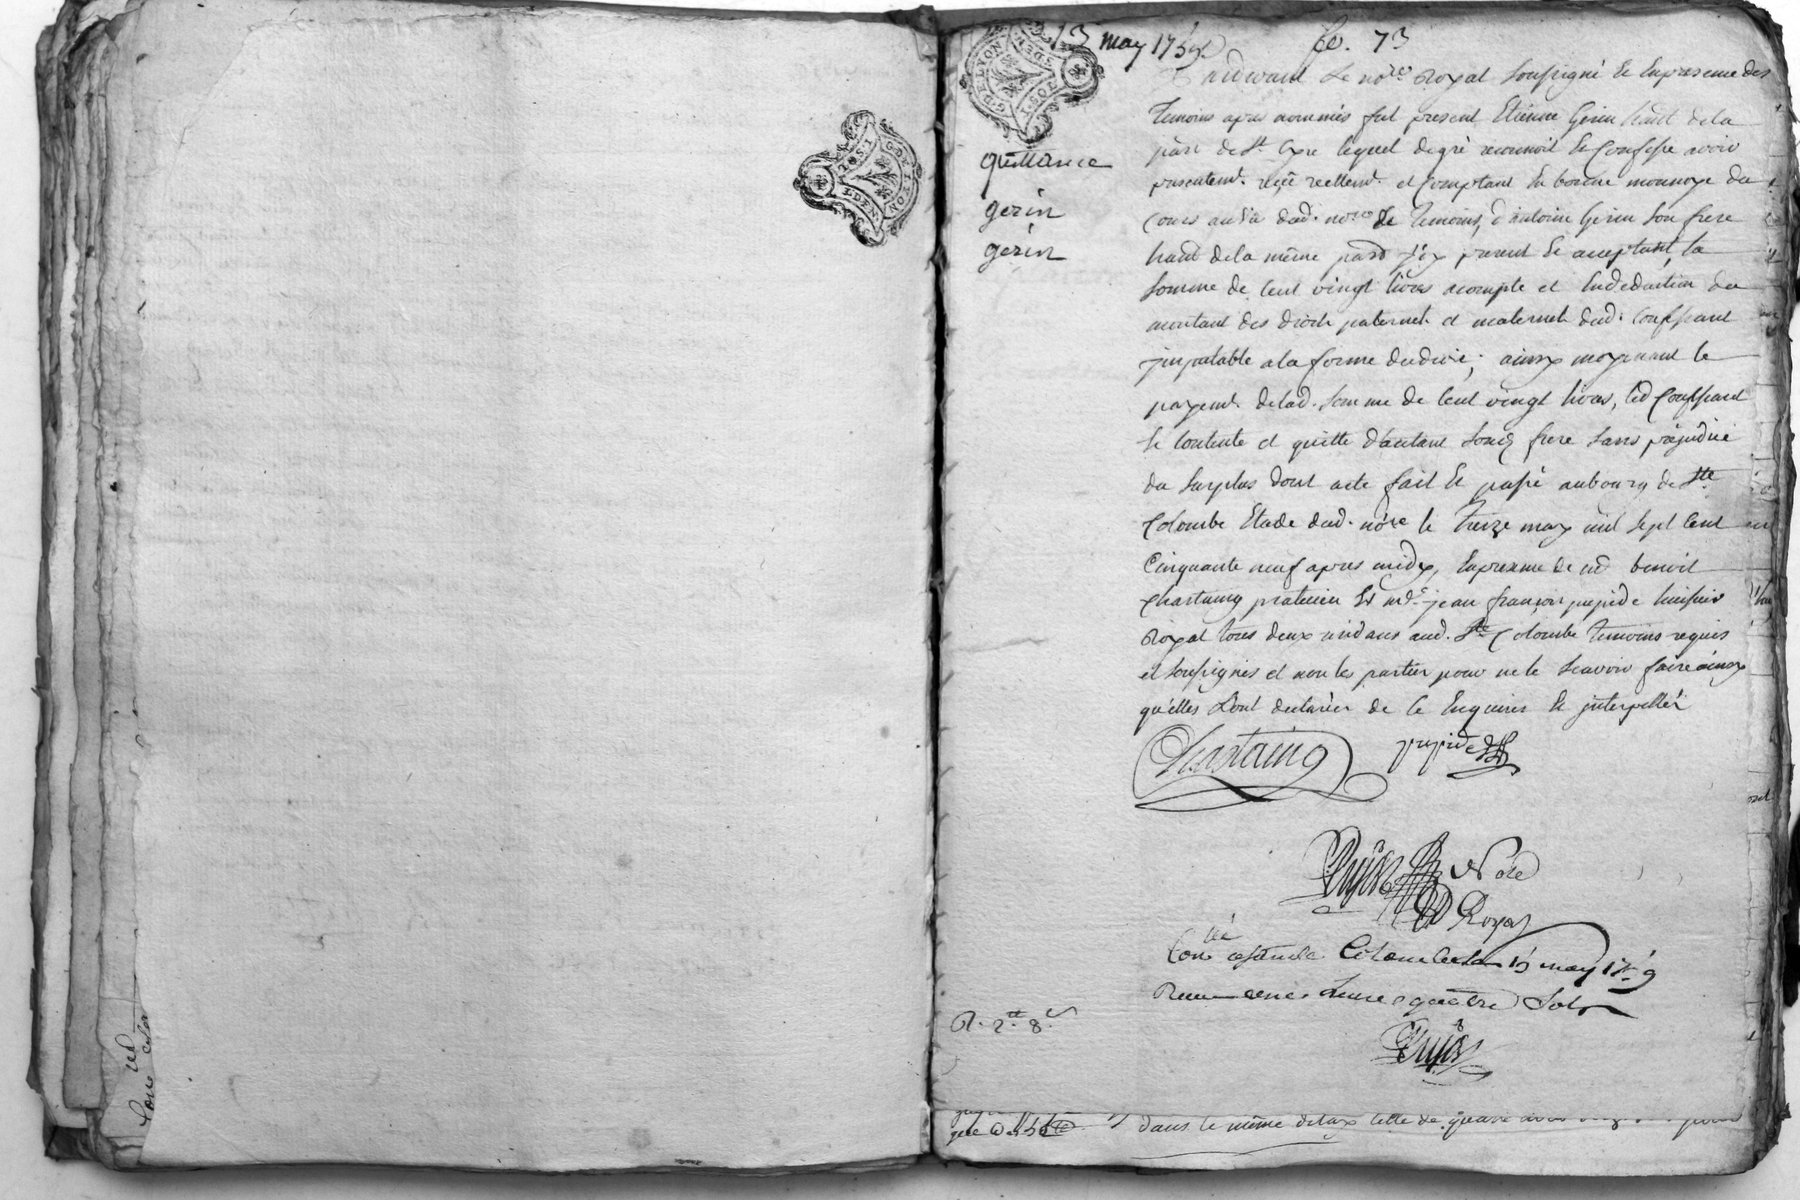 13 may 1759 fo. 73
quittance
gerin
gerin
Pardevant Le nore Royal soussigné Et En presence des
Temoins apres nommés fut present Etienne Gerin habt de la
parr de St Cyre lequel de gré reconnoit Et Confesse avoir
presentemt. reçû reellemt. et Comptant En bonne monnoye du
Cours au vû dud. nore Et Temoins, d'Antoine Gerin son frere
habt de la même parr icy present Et acceptant, la
somme de Cent vingt livres acompte et En deduction du
montant des droits paternels et maternels dud. Confessant
imputable a la forme du droit; ainsy moyenant le
payemt. de lad. somme de Cent vingt livres, led Confessant
se contente et quitte d'autant sond frere sans préjudice
du surplus dont acte fait Et passé au bourg de Ste
Colombe Etude dud. nore le treize may mil sept Cent
Cinquante neuf apres midy, En presence de me benoit
Chartaing praticien Et me jean françois huissier
Royal tous deux residans aud. Ste Colombe temoins requis
et soussignés et non les parties pour ne le sçavoir faire ainsy
qu'elles L'ont declarées de Ce Enquises Et interpellés
Chartaing
Nore
Royal
Conlé a Sainte Colombe le 13 may 1759
Reçu quatre Sols
R. 2tt. 8s
dans le même delay